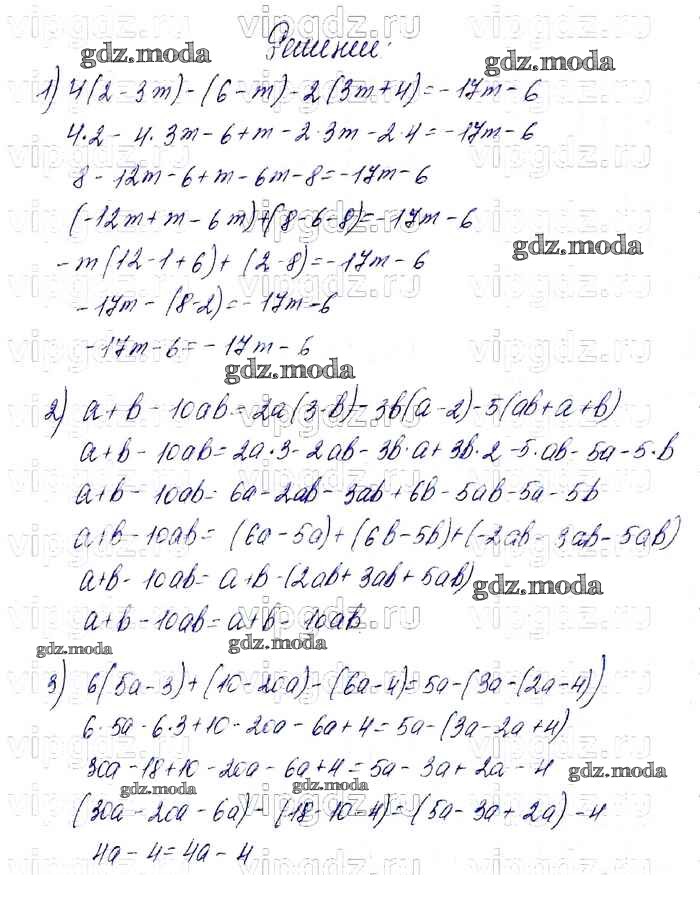 Решение:
1) 4(2-3m)-(6-m)-2(3m+4)=-17m-6
4·2-4·3m-6+m-2·3m-2·4=-17m-6
8-12m-6+m-6m-8=-17m-6
(-12m+m-6m)+(8-6-8)=-17m-6
-m(12-1+6)+(2-8)=-17m-6
-17m-(8-2)=-17m-6
-17m-6=-17m-6
2) a+b-10ab=2a(3-b)-3b(a-2)-5(ab+a+b)
a+b-10ab=2a·3-2ab-3b·a+3b·2-5·ab-5a-5·b
a+b-10ab=6a-2ab-3ab+6b-5ab-5a-5b
a+b-10ab=(6a-5a)+(6b-5b)+(-2ab-3ab-5ab)
a+b-10ab=a+b-(2ab+3ab+5ab)
a+b-10ab=a+b-10ab
3) 6(5a-3)+(10-20a)-(6a-4)=5a-(3a-(2a-4))
6·5a-6·3+10-20a-6a+4=5a-(3a-2a+4)
30a-18+10-20a-6a+4=5a-3a+2a-4
(30a-20a-6a)-(18-10-4)=(5a-3a+2a)-4
4a-4=4a-4
gdz.moda
vipgdz.ru